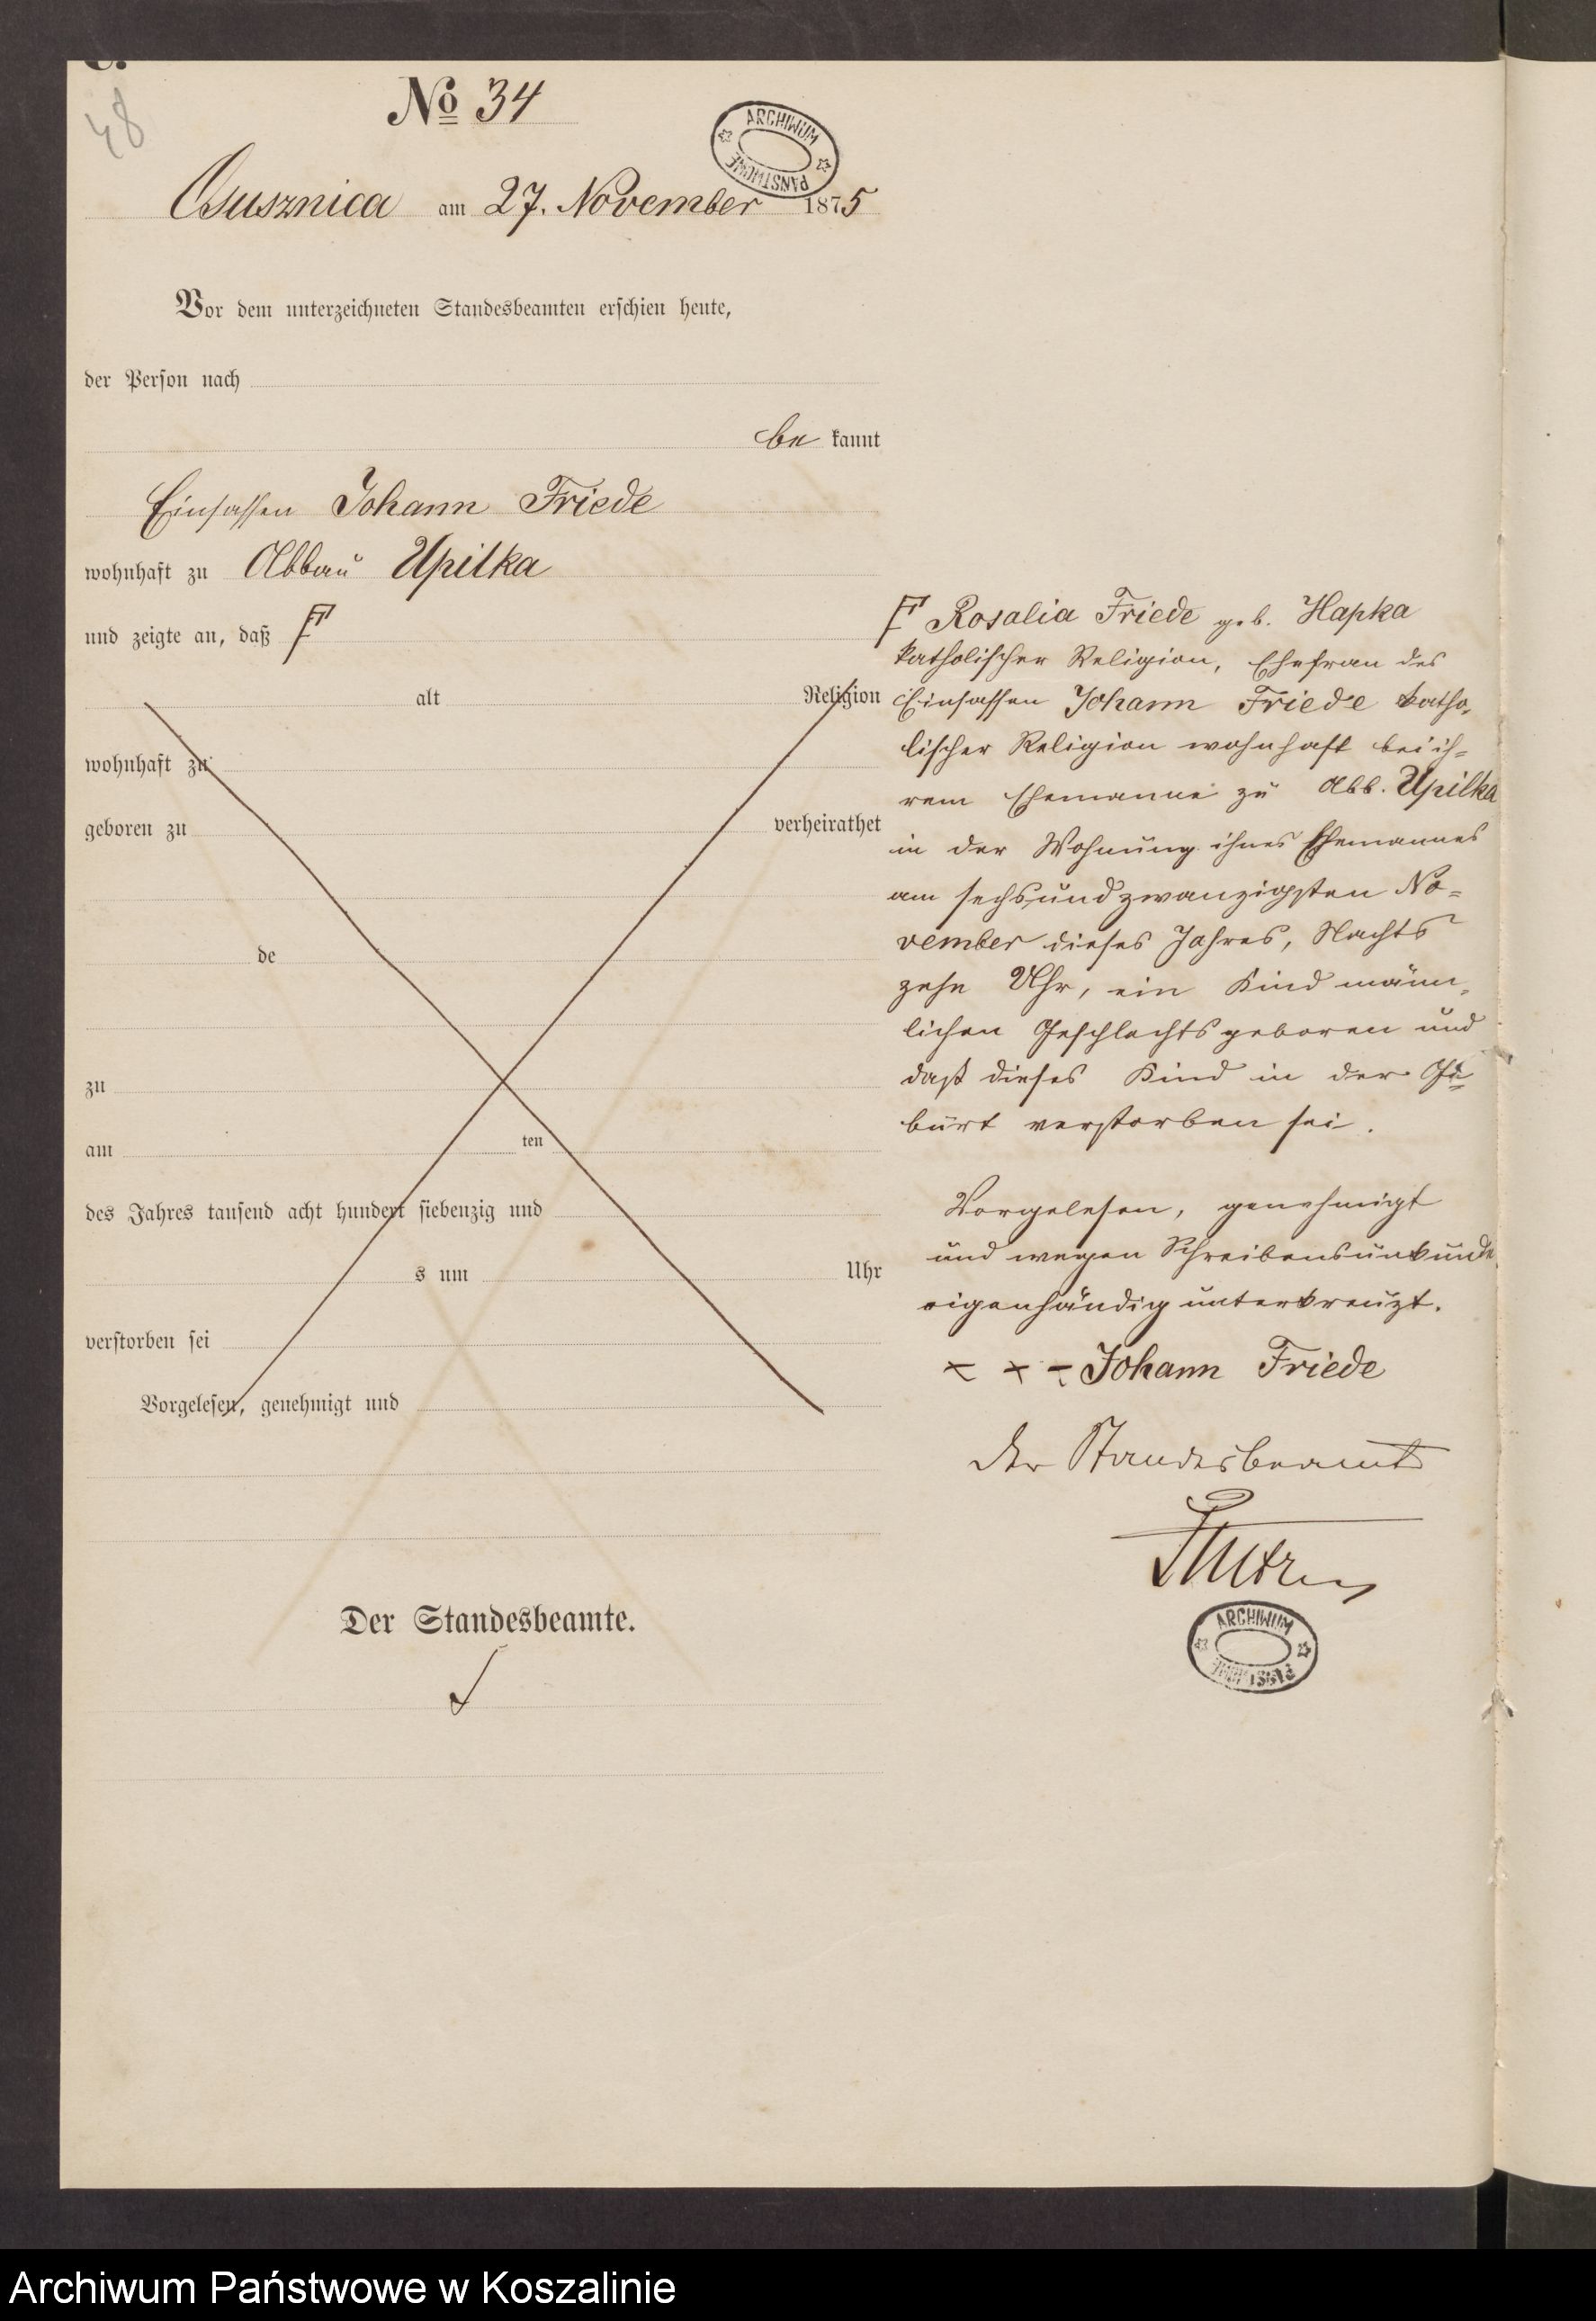 C.
48
No 34
Osusznica am 27. November 1875
ARCHIWUM PAŃSTWOWE
Vor dem unterzeichneten Standesbeamten erschien heute,
der Person nach
be kannt
Einsassen Johann Friede
wohnhaft zu Abbau Upilka
und zeigte an, daß F
alt Religion
wohnhaft zu
geboren zu verheirathet
de
zu
am ten
des Jahres tausend acht hundert siebenzig und
s um Uhr
verstorben sei
Vorgelesen, genehmigt und
Der Standesbeamte.
F Rosalia Friede geb. Hapka
katholischer Religion, Ehefrau des
Einsassen Johann Friede katho-
lischer Religion wohnhaft bei ih-
rem Ehemanne zu Abb. Upilka
in der Wohnung ihres Ehemannes
am sechsundzwanzigsten No-
vember dieses Jahres, Nachts
zehn Uhr, ein Kind männ-
lichen Geschlechts geboren und
daß dieses Kind in der Ge-
burt verstorben sei.
Vorgelesen, genehmigt
und wegen Schreibensunkunde
eigenhändig unterkreuzt.
x x x Johann Friede
Der Standesbeamte
ARCHIWUM
Archiwum Państwowe w Koszalinie